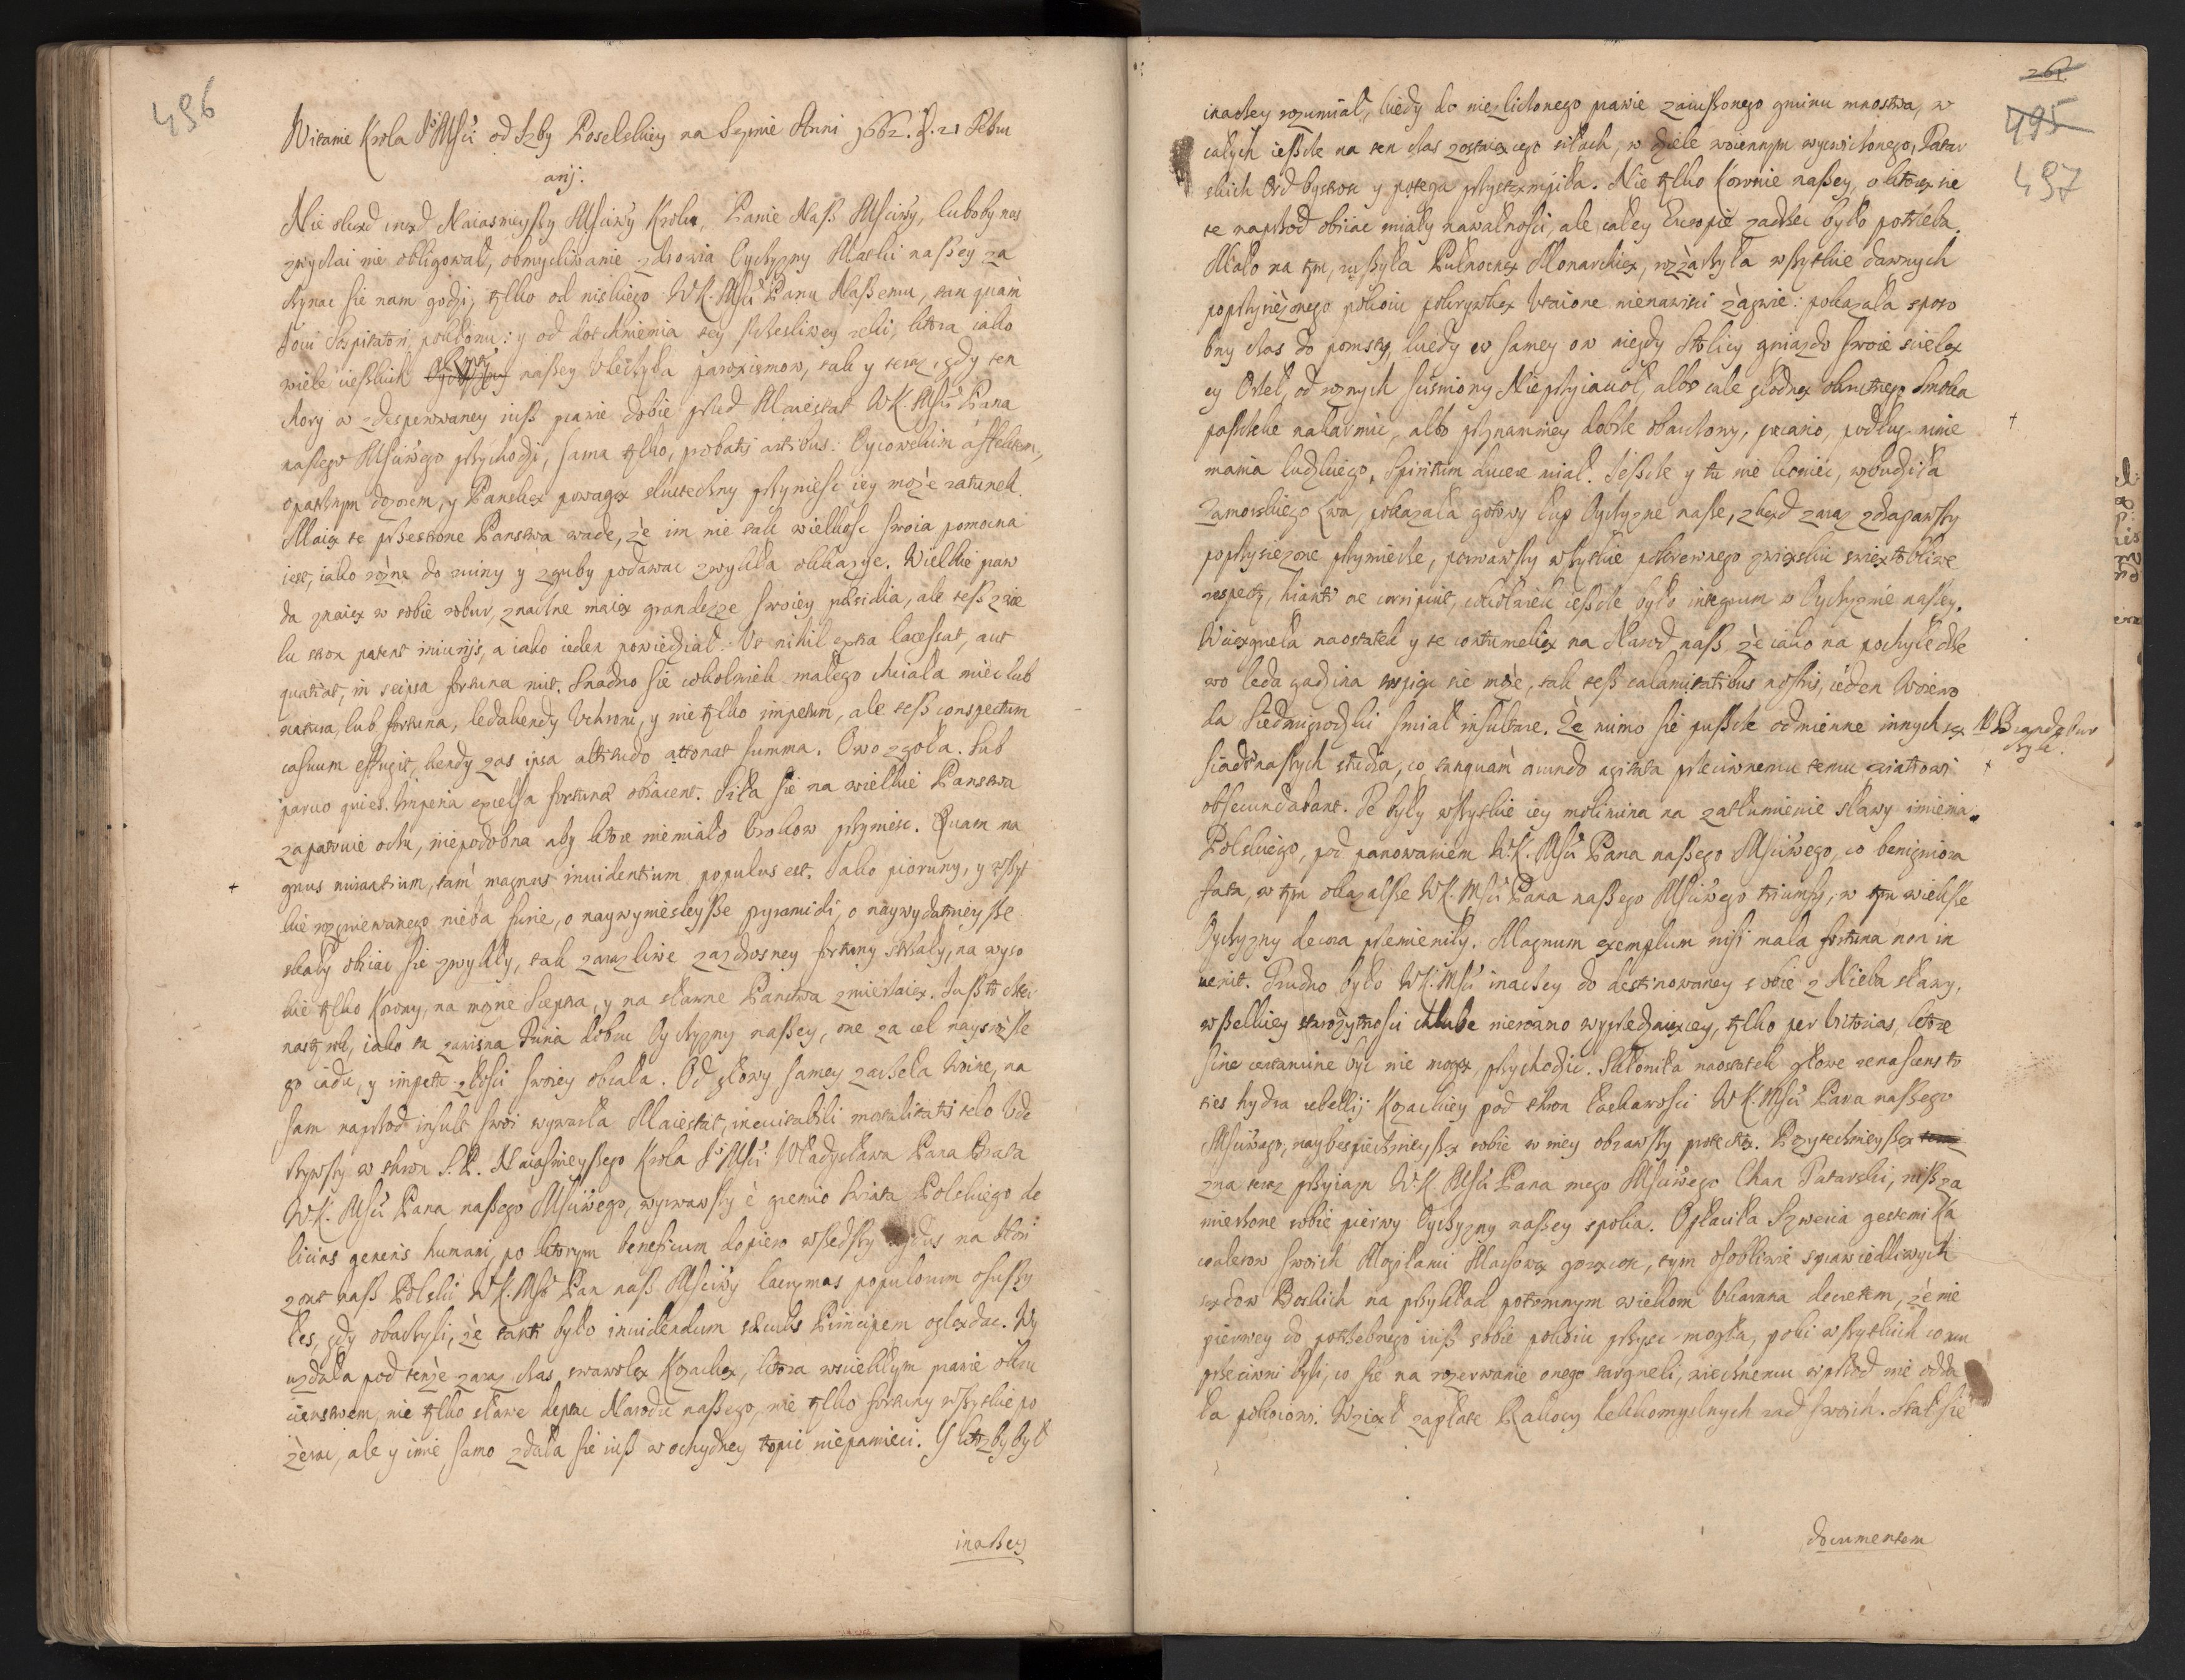 496
Witanie Krola Jo Msci od Izby Poselskiey na Seymie Anni 1662. d. 21 Febru
arij.
Nie skąd inąd Naiasnieyszy Msciwy Krolu, Panie Nasz Msciwy, luboby nas
zwyczai nie obligował, obmysliwanie zdrowia Oyczyzny Matki naszey za
czynac sie nam godzi, tylko od niskiego W.K. Msci Panu Naszemu, tan quàm
Jovi Sospitatori, pokłonu: y od dotchnienia tey sczesliwey ręki, ktora iako
wiele ciesżkich naszey uleczyła paroxizmow, tak y teraz gdy ten
chory w zdesperowaney iusz prawie dobie przed Maiestat W.K. Msci Pana
naszego Msciwego przychodzi, sama tylko, probatis artibus: Oycowskim affektem,
opatrznym dozorem, y Panską powagą skuteczny przyniesc iey może ratunek.
Maią te przestrone Panstwa wade, że im nie tak wielkosc swoia pomocna
iest, iako rożne do ruiny y zguby podawac zwykła okkazye. Wielkie praw
da znaią w sobie robur, znaczne maią grandezze swoiey praesidia, ale tesz z wie
lu stron patent iniurijs, a iako ieden powiedział: Ut nihil extra lacessat, aut
quatiat, in seipsa fortuna ruit. Snadno sie cokolwiek małego chciała miec lub
natura, lub fortuna, ledakendy uchroni, y nie tylko impetum, ale tesz conspectum
casuum effugit, kendy zas ipsa altitudo attonat summa. Owo zgoła. Sub
parvo quies. Imperia excelsa fortunae obiacent. Siła sie na wielkie Panstwa
zapatruie ochu, niepodobna aby ktore niemiało urokow przyniesc. Quam ma
gnus mirantium, tam magnus invidentium populus est. Iako pioruny, y wszyt
kie rozgniewanego nieba furie, o naywynieslejsze pyramidi, o naywydatnieysze
skały obiiac sie zwykły, tak zarazliwe zazdrosney fortuny strzały, na wyso
kie tylko Korony, na mozne Sceptra, y na sławne Panstwa zmierzaią. Iusz to czte
nasty rok, iako ta zawisna Furia dobru Oyczyzny naszey, one za cel naysrozsze
go iadu, y impetu złosci swoiey obrała. Od głowy samey zaczeła woine, na
sam naprzod insult swoi wywarła Maiestat, inevitabili mortalitatis telo ude
rzywszy w skron S.P. Naiasnieyszego Krola Jo Msci Władysława Pana Brata
W.K. Msci Pana naszego Msciwego, wyrwawszy è gremio swiata Polskiego de
licias generis humani, po ktorym beneficum dopiero wszedszy sydus na Hori
zont nasz Polski W.K. Msc Pan nasz Msciwy lacrymas populorum osuszy
łes, gdy obaczyli, że tanti było invidendum saeculis Principem oglądac. Wy
uzdała pod tenże zaraz czas swawolą Kozacką, ktora wsciekłym prawie okru
cienstwem, nie tylko sławe deptac Narodu naszego, nie tylko fortuny wszytkie po
żerac, ale y imie samo zdała sie iusz w ochydney topic niepamieci. Y ktozby był
inaszey

261
495
497
inaczey rozumiał, kiedy do niezliczonego prawie zaiuszonego gminu mnostwa, w
całych ieszcze na ten czas zostaiącego siłach, w dziele woiennym wycwiczonego, Tatar
skich Ord bystrosc y potega przystąmpiła. Nie tylko Koronie naszey, o ktorą sie
te naprzod obiiac miały nawałnosci, ale całey Europie zadrżec było potrzeba.
Mało na tym, ruszyła Pułnocną Monarchią, rozżarzyła wszytkie dawnych
poprzysiężonego pokoiu pokrywką utaione nienawisci żagwie: pokazała sposo
bny czas do pomsty, kiedy w samey on niegdy Stolicy gniazdo swoie scielą
cy Orzeł, od roznych scisniony Nieprzyiacioł, albo cale głodną okrutnego Smoka
paszczeke nakarmic, albo przynamniey dobrze obarczony, pociano, podług mnie
mania ludzkiego, Spiritum ducere miał. Ieszcze y tu nie koniec, wzbudziła
Zamorskiego Lwa, pokazała gotowy łup Oyczyzne nasze, zkąd zaraz zdrapawszy
poprzysiezone przymierze, porwawszy wszytkie pokrewnego związku swiętobliwe
respecty, hianti ore corripuit, cokolwiek ieszcze było integrum w Oyczyznie naszey.
Wciągneła naostatek y te contumelią na Narod nasz, że iako na pochyłe drze
wo leda gadzina wspiąc sie może, tak tesz calamitatibus nostris, ieden Woiewo
da Siedmigrodzki smiał insultare. Że mimo sie puszcze odmienne innych są
siadow naszych studia, co tanquàm arundo agitata przeciwnemu temu wiatrowi
obsecundabant. Te były wszytkie iey molimina na zatłumienie sławy imienia
Polskiego, pod panowaniem W.K. Msci Pana naszego Msciwego, co benigniora
fata, w tym okazalsze W.K. Msci Pana naszego Msciwego triumfy, w tym wieksze
Oyczyzny decora przemieniły. Magnum exemplum nisi mala fortuna non in
venit. Trudno było W.K. Msci inaczey do destinowaney sobie z Nieba sławy,
wszelkiey starożytnosci chlube nierowno wyprzedzaiącey, tylko per victorias, ktore
sine certamine byc nie mogą, przychodzic. Skłoniła naostatek głowe renascens to
ties hydra rebellij Kozackiey pod stopa łaskawosci W.K. Msci Pana naszego
Msciwego, naybespiecznieyszą sobie w niey obrawszy protectią. Pozytecznieyszą
zna teraz przyiazn W.K. Msci Pana mego Msciwego Chan Tatarski, nisz za
mierzone sobie pierwy Oyczyzny naszey spolia. Opłaciła Szwecia gestemi Ka
walerow swoich Mogiłami Machową gorącosc, tym osobliwie sprawiedliwych
sądow Boskich na przykład potomnym wiekom ukarana decretem, że nie
pierwey do potrzebnego iusz sobie pokoiu przysc mogła, poki wszytkich co mu
przeciwni byli, co sie na rozerwanie onego targneli, wiecznemu wprzod nie odda
ła pokoiowi. Wziął zapłate Rakocy lekkomyslnych rad swoich. Stał sie
documentem